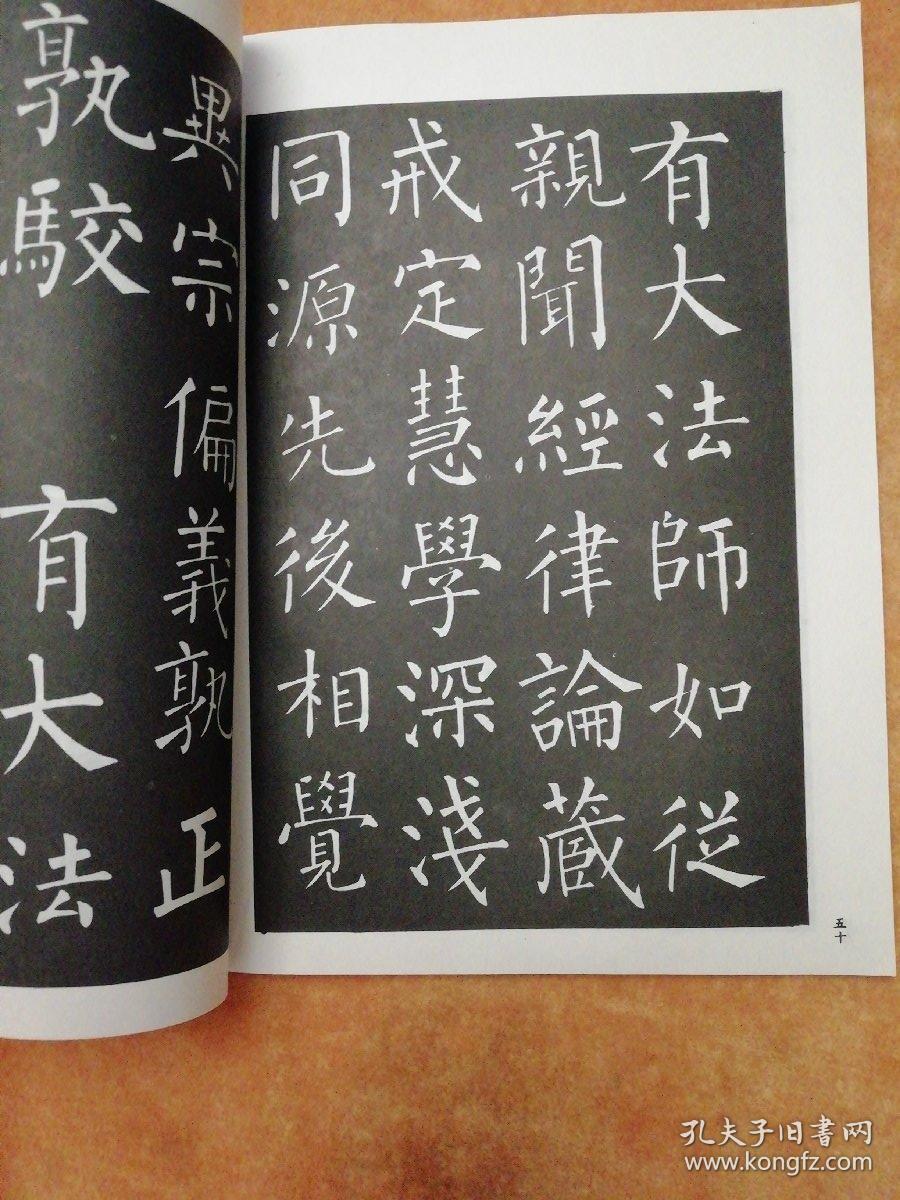 異宗偏義孰正
孰駮 有大法
有大法師如從
親聞經律論藏
戒定慧學深淺
同源先後相覺
五十
孔夫子旧书网
www.kongfz.com